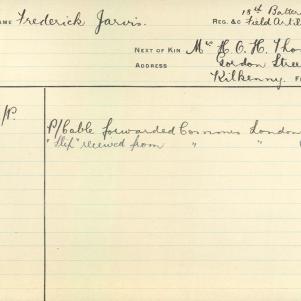 NAME Frederick Jarvis.
18th Batter
REG. &C Field Artil
NEXT OF KIN Mrs H. O. H. Thom
ADDRESS Gordon Stree
Kilkenny. F
/P.
P/Cable forwarded Commns London
" received from " "